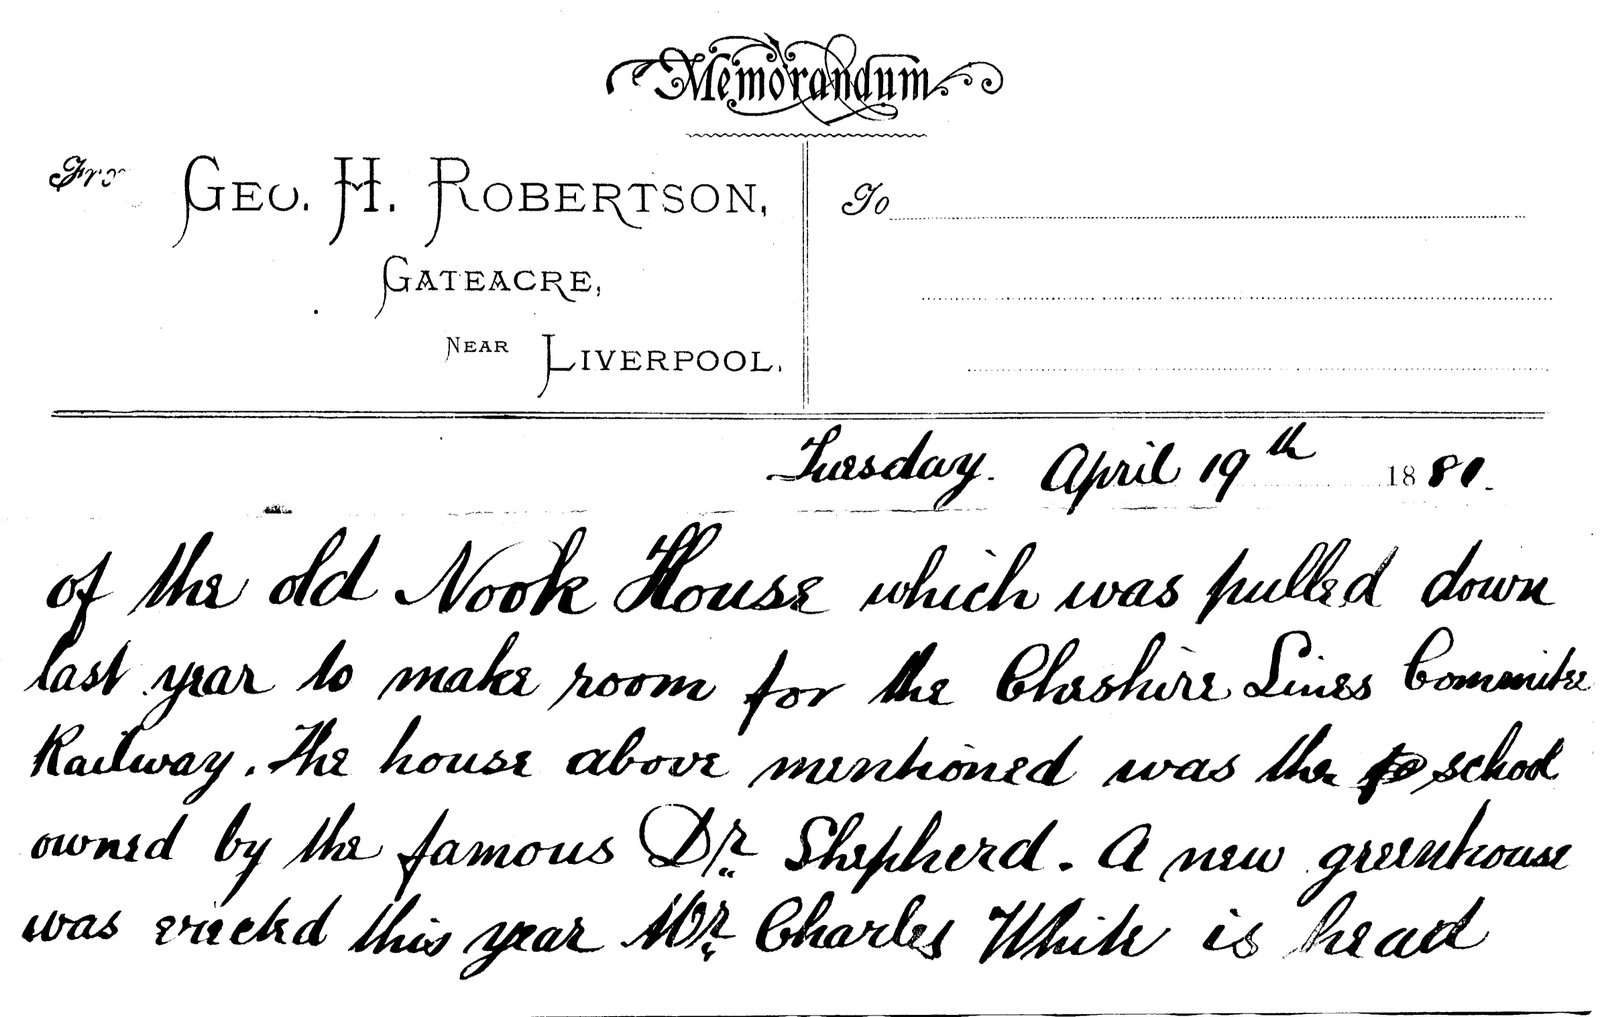 Memorandum
From GEO. H. ROBERTSON,
GATEACRE,
NEAR LIVERPOOL.
To
Tuesday. April 19th 1881.
of the old Nook House which was pulled down
last year to make room for the Cheshire Lines Committee
Railway. The house above mentioned was the school
owned by the famous Dr. Shepherd. A new greenhouse
was erected this year Mr. Charles White is head